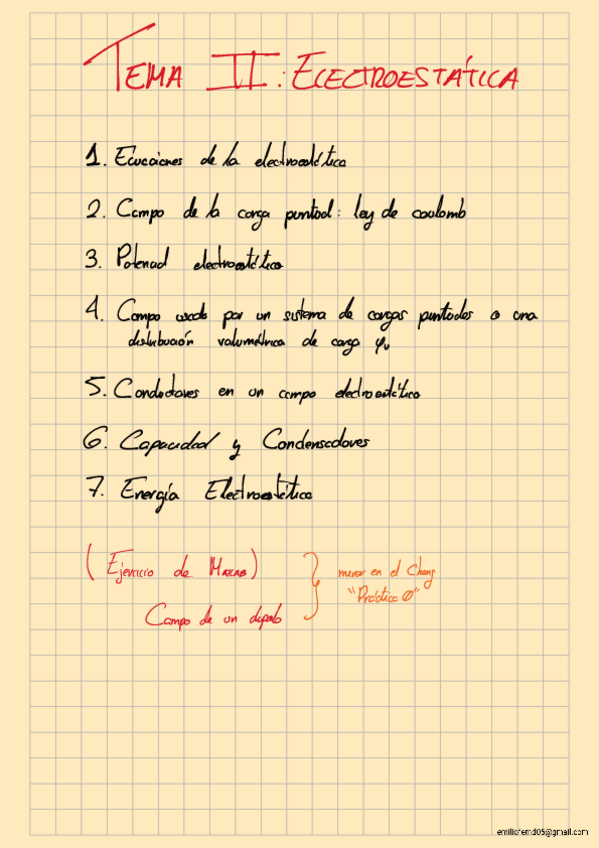 TEMA II: ELECTROESTÁTICA
1. Ecuaciones de la electroestática
2. Campo de la carga puntual: ley de coulomb
3. Potencial electroestático
4. Campo creado por un sistema de cargas puntuales o una
distribución volumétrica de carga
5. Conductores en un campo electroestático
6. Capacidad y Condensadores
7. Energía Electroestática
(Ejercicio de )
Campo de un dipolo
mirar en el Cheng
"Práctica 0"
emiliofernd05@gmail.com